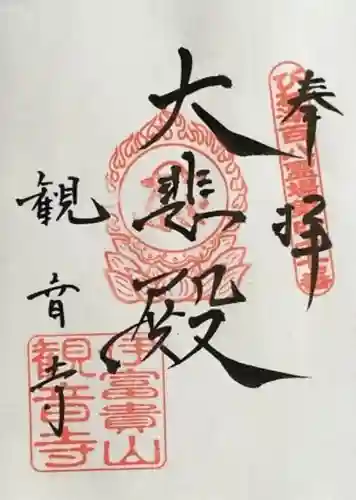 奉拝
大悲殿
観音寺
住富貴山
観音寺